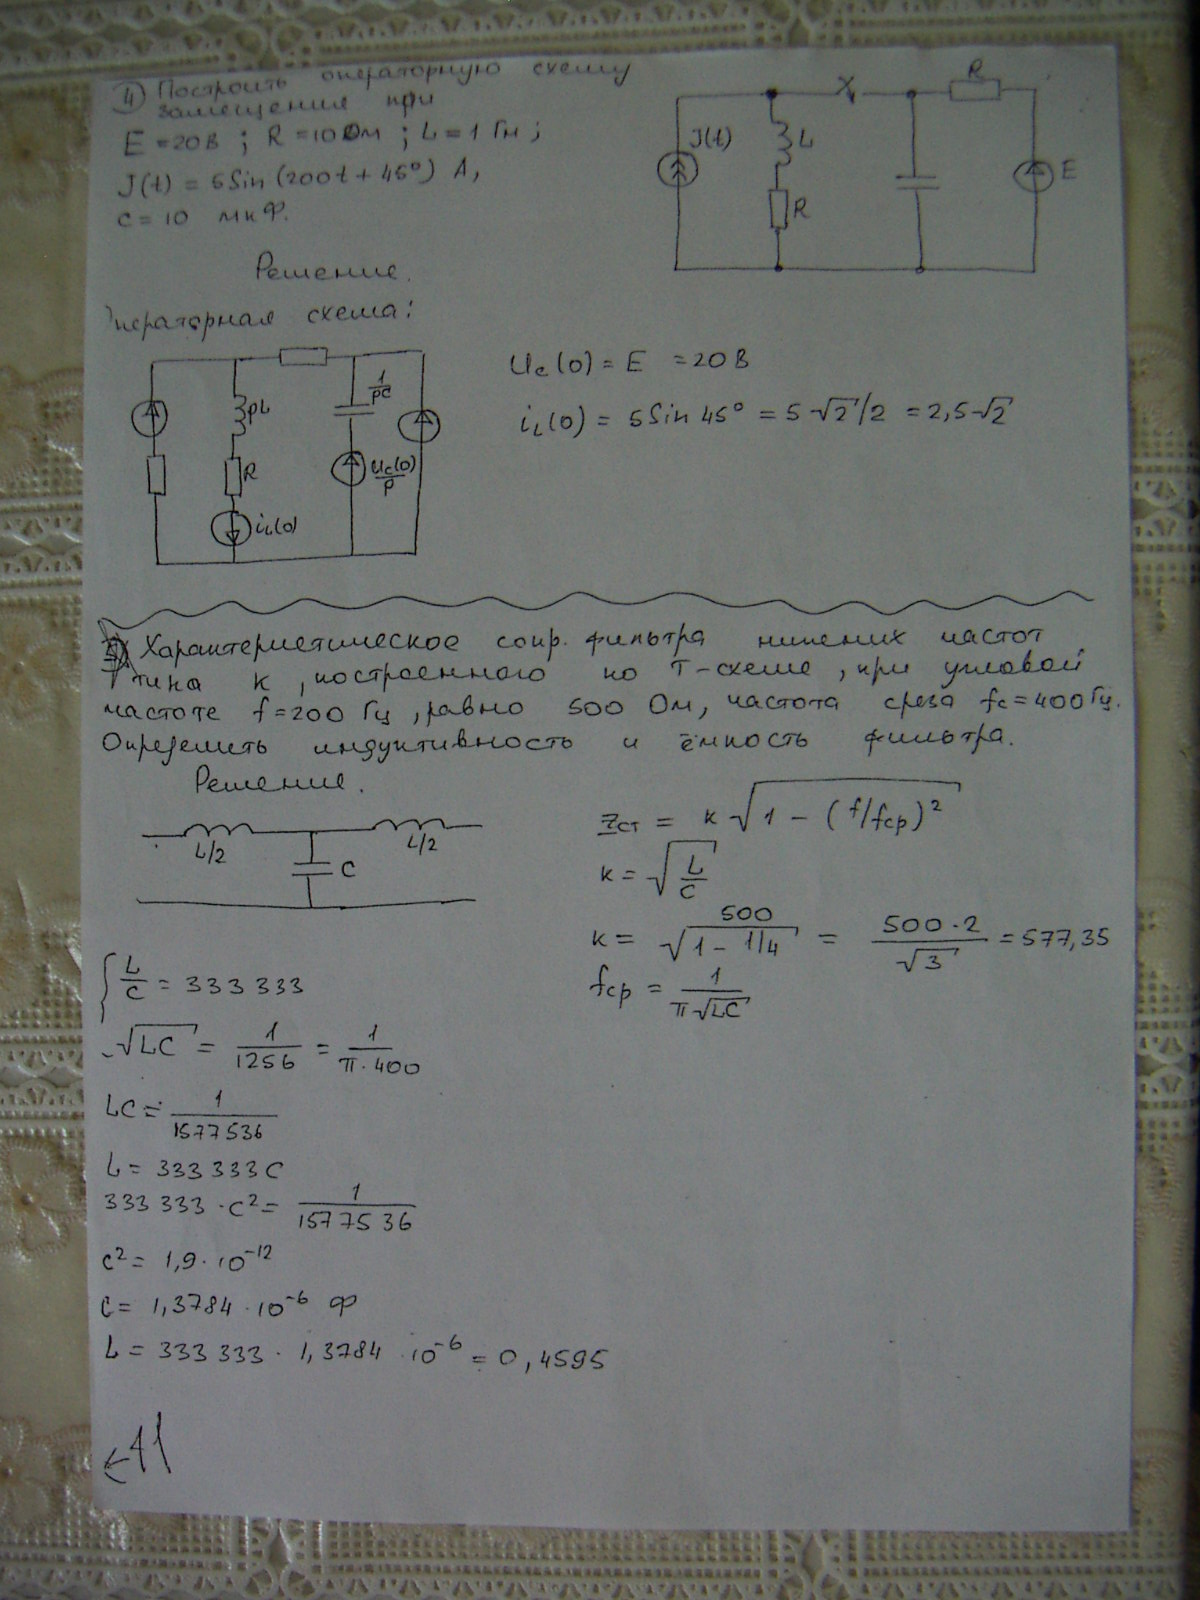 4) Построить операторную схему
замещения при
E = 20В ; R = 10 Ом ; L = 1 Гн ;
J(t) = 5 Sin (200t + 45°) А,
c = 10 мкФ.
J(t)
L
R
R
E
Решение.
Операторная схема:
pL
R
iL(0)
1/pC
Uc(0)/P
Uc(0) = E = 20В
iL(0) = 5 Sin 45° = 5 √2/2 = 2,5√2
Характеристическое сопр. фильтра нижних частот
типа к, построенного по Т-схеме, при угловой
частоте f = 200 Гц, равно 500 Ом, частота среза fc = 400 Гц.
Определить индуктивность и ёмкость фильтра.
Решение.
L/2
L/2
C
Zст = к √(1 - (f/fср)²)
к = √(L/C)
к = 500/√(1 - 1/4) = 500·2/√3 = 577,35
fср = 1/(π√LC)
L/C = 333 333
√LC = 1/1256 = 1/(π·400)
LC = 1/1577536
L = 333 333 C
333 333 · C² = 1/1577536
C² = 1,9·10⁻¹²
C = 1,3784·10⁻⁶ Ф
L = 333 333 · 1,3784 ·10⁻⁶ = 0,4595